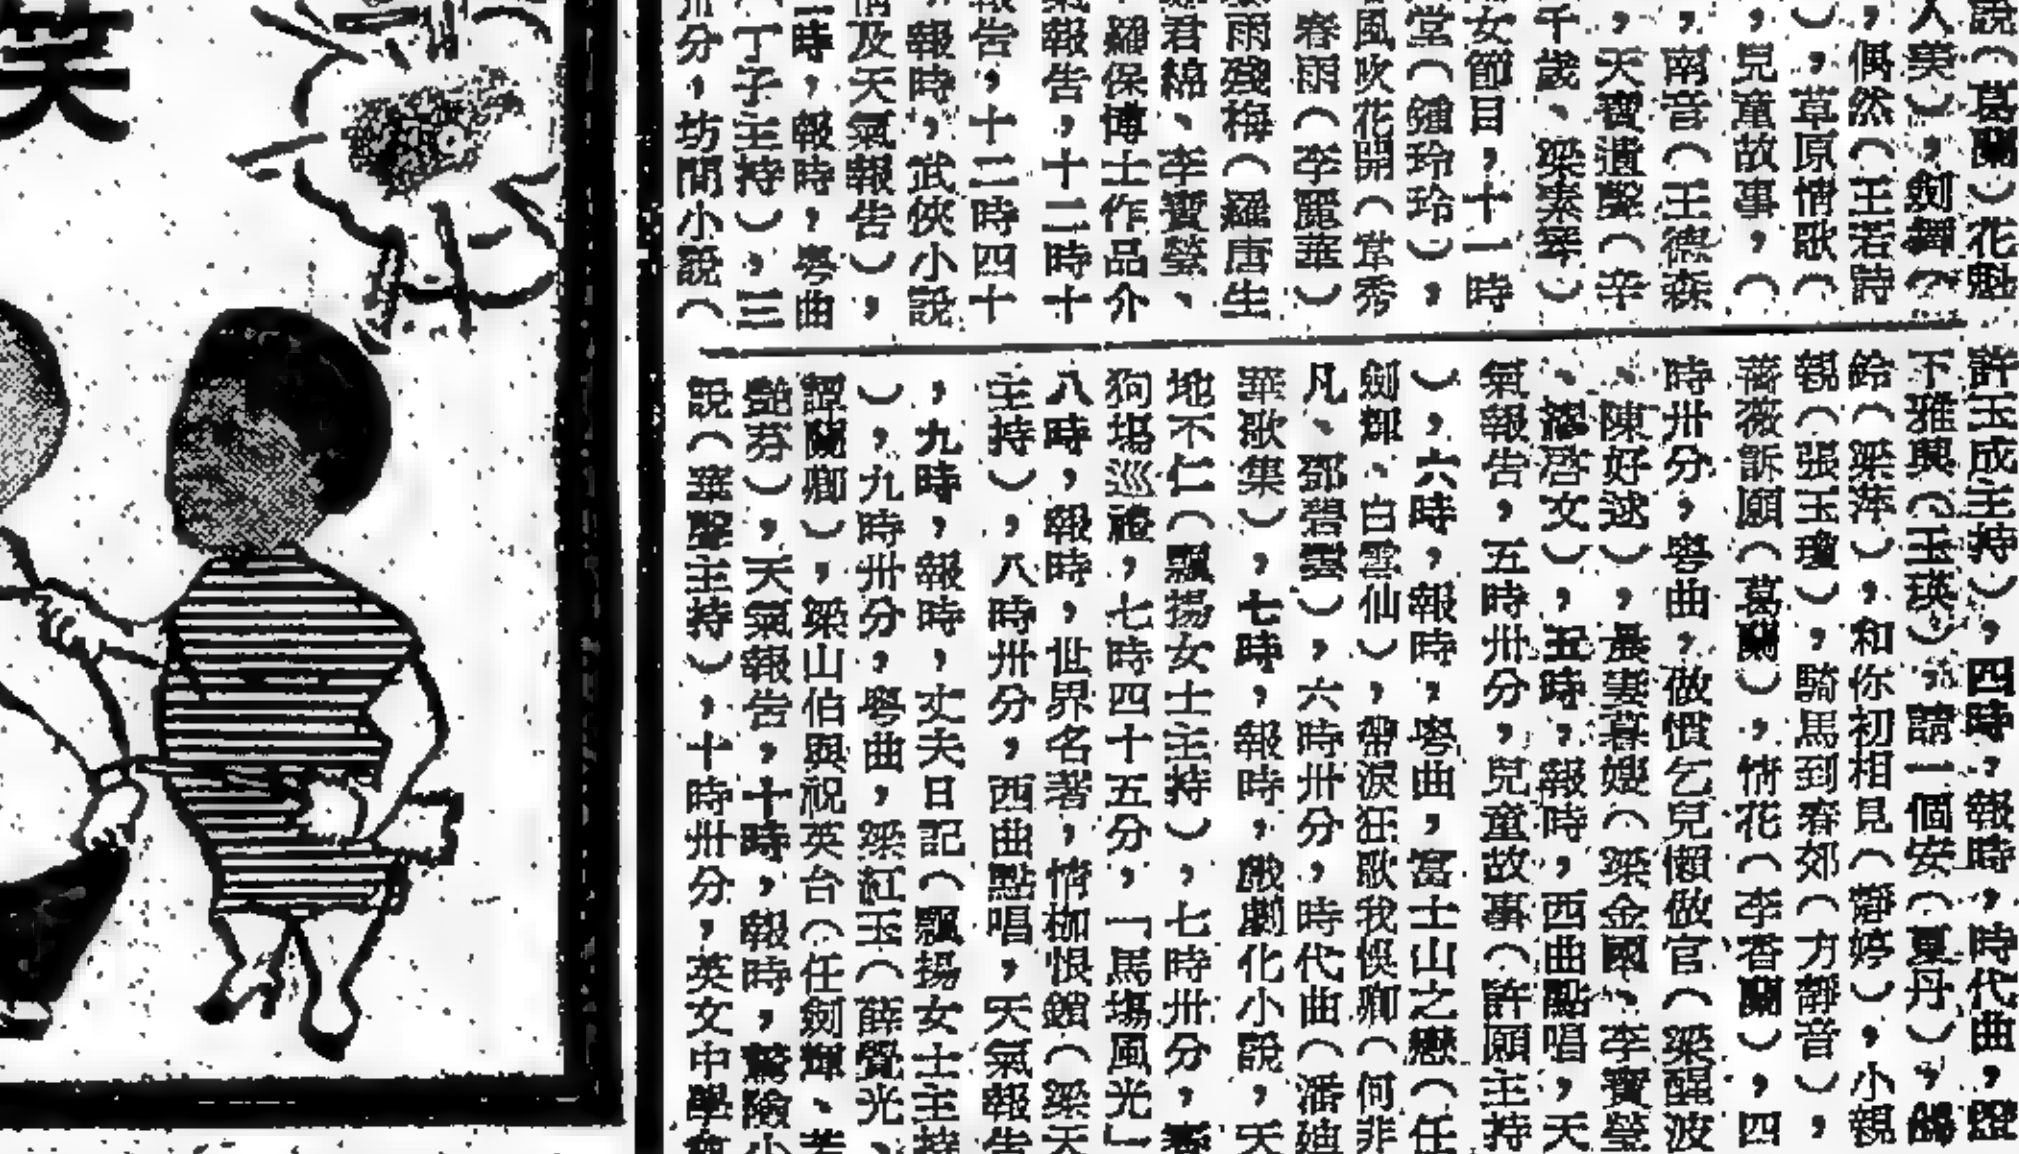 說（葛蘭）花魁
人美），劍舞（
，偶然（王若詩
），草原情歌（
，兒童故事，（
，南音（王德森
，天寶遺聲（辛
千歲、梁素琴）
女節目，十一時
堂（鍾玲玲），
風吹花開（韋秀
春雨（李麗華）
雨殘梅（羅唐生
君綿、李寶瑩、
羅保博士作品介
氣報告，十二時十
報告，十二時四十
，報時，武俠小說
情及天氣報告），
時，報時，粵曲
（丁子主持），三
卅分，坊間小說（
許玉成主持），四時，報時，時代曲，
下雅興（玉瑛），請一個安（夏丹），
鈴（梁萍），和你初相見（靜婷），小親
親（張玉瓊），騎馬到春郊（方靜音），
薔薇訴願（葛蘭），情花（李香蘭），四
時卅分，粵曲，做慣乞兒懶做官（梁醒波
、陳好逑），晨妻暮嫂（梁金國、李寶瑩
、啓文），五時，報時，西曲點唱，天
氣報告，五時卅分，兒童故事（許願主持
），六時，報時，粵曲，富士山之戀（任
劍輝、白雲仙），帶淚狂歌我悞卿（何非
凡、鄧碧雲），六時卅分，時代曲（潘迪
華歌集），七時，報時，戲劇化小說，天
地不仁（飄揚女士主持），七時卅分，賽
狗場巡禮，七時四十五分，「馬場風光」
八時，報時，世界名著，情枷恨鎖（梁天
主持），八時卅分，西曲點唱，天氣報告
，九時，報時，丈夫日記（飄揚女士主持
），九時卅分，粵曲，梁紅玉（薛覺光、
譚蘭卿），梁山伯與祝英台（任劍輝、芳
艷芬），天氣報告，十時，報時，驚險小
說（華聲主持），十時卅分，英文中學會
笑